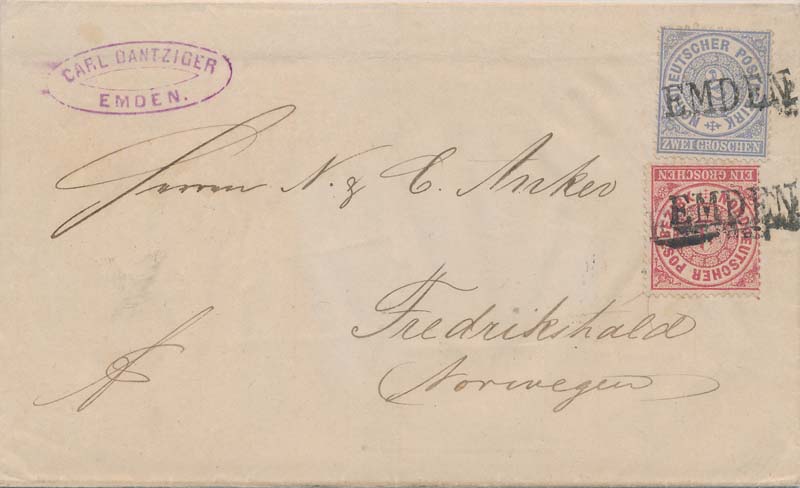 CARL DANTZIGER
EMDEN.
NORDDEUTSCHER POSTBEZIRK
ZWEI GROSCHEN
EMDEN
EIN GROSCHEN
NORDDEUTSCHER POSTBEZIRK
EMDEN
Herren N. & C. Anker
Fredrikshald
Norwegen